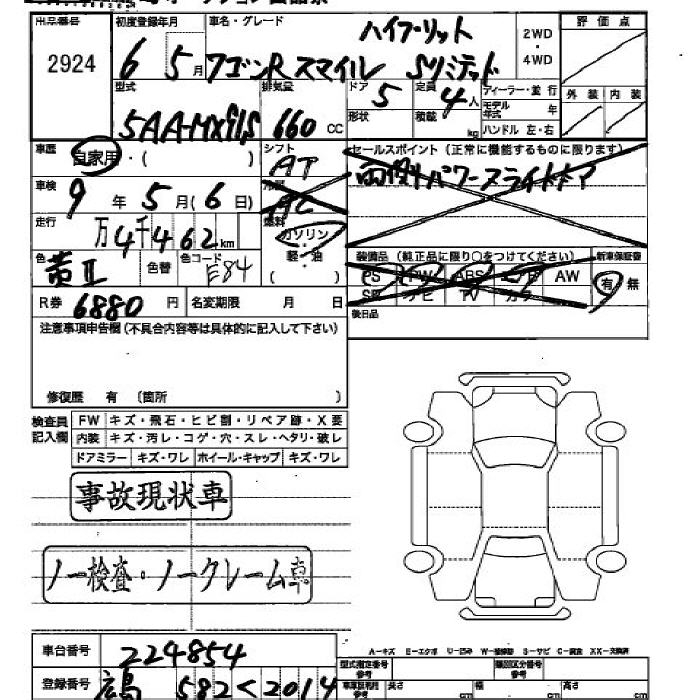 出品番号
2924
初度登録年月
6 5月
車名・グレード
ハイブリット
ワゴンR スマイル Sリミテッド
2WD
・
4WD
評価点
外装 内装
型式
5AA-MX91S
排気量
660 CC
ドア
5
形状
定員
4人
積載 kg
ディーラー・並行
モデル年式 年
ハンドル 左・右
車歴
自家用・( )
シフト
AT
セールスポイント (正常に機能するものに限ります)
両側パワースライドドア
車検
9年 5月(6日)
冷房
AC
走行
万4千462km
燃料
ガソリン
軽・油
( )
色
黄II
色替
色コード
E84
装備品 (純正品に限り○をつけてください)
PS PW ABS エアB AW
SR ナビ TV カワ
新車保証書
有・無
R券 6880円
名変期限 月 日
後日品
注意事項申告欄(不具合内容等は具体的に記入して下さい)
修復歴 有 (箇所 )
検査員記入欄
FW キズ・飛石・ヒビ割・リペア跡・X要
内装 キズ・汚レ・コゲ・穴・スレ・ヘタリ・破レ
ドアミラー キズ・ワレ ホイール・キャップ キズ・ワレ
事故現状車
ノー検査・ノークレーム車
車台番号 224854
登録番号 広島 582 く 2014
A-キズ E-エクボ U-凹み W-補修跡 S-サビ C-腐食 XX-交換済
型式指定番号
類別区分番号
長さ cm 幅 cm 高さ cm